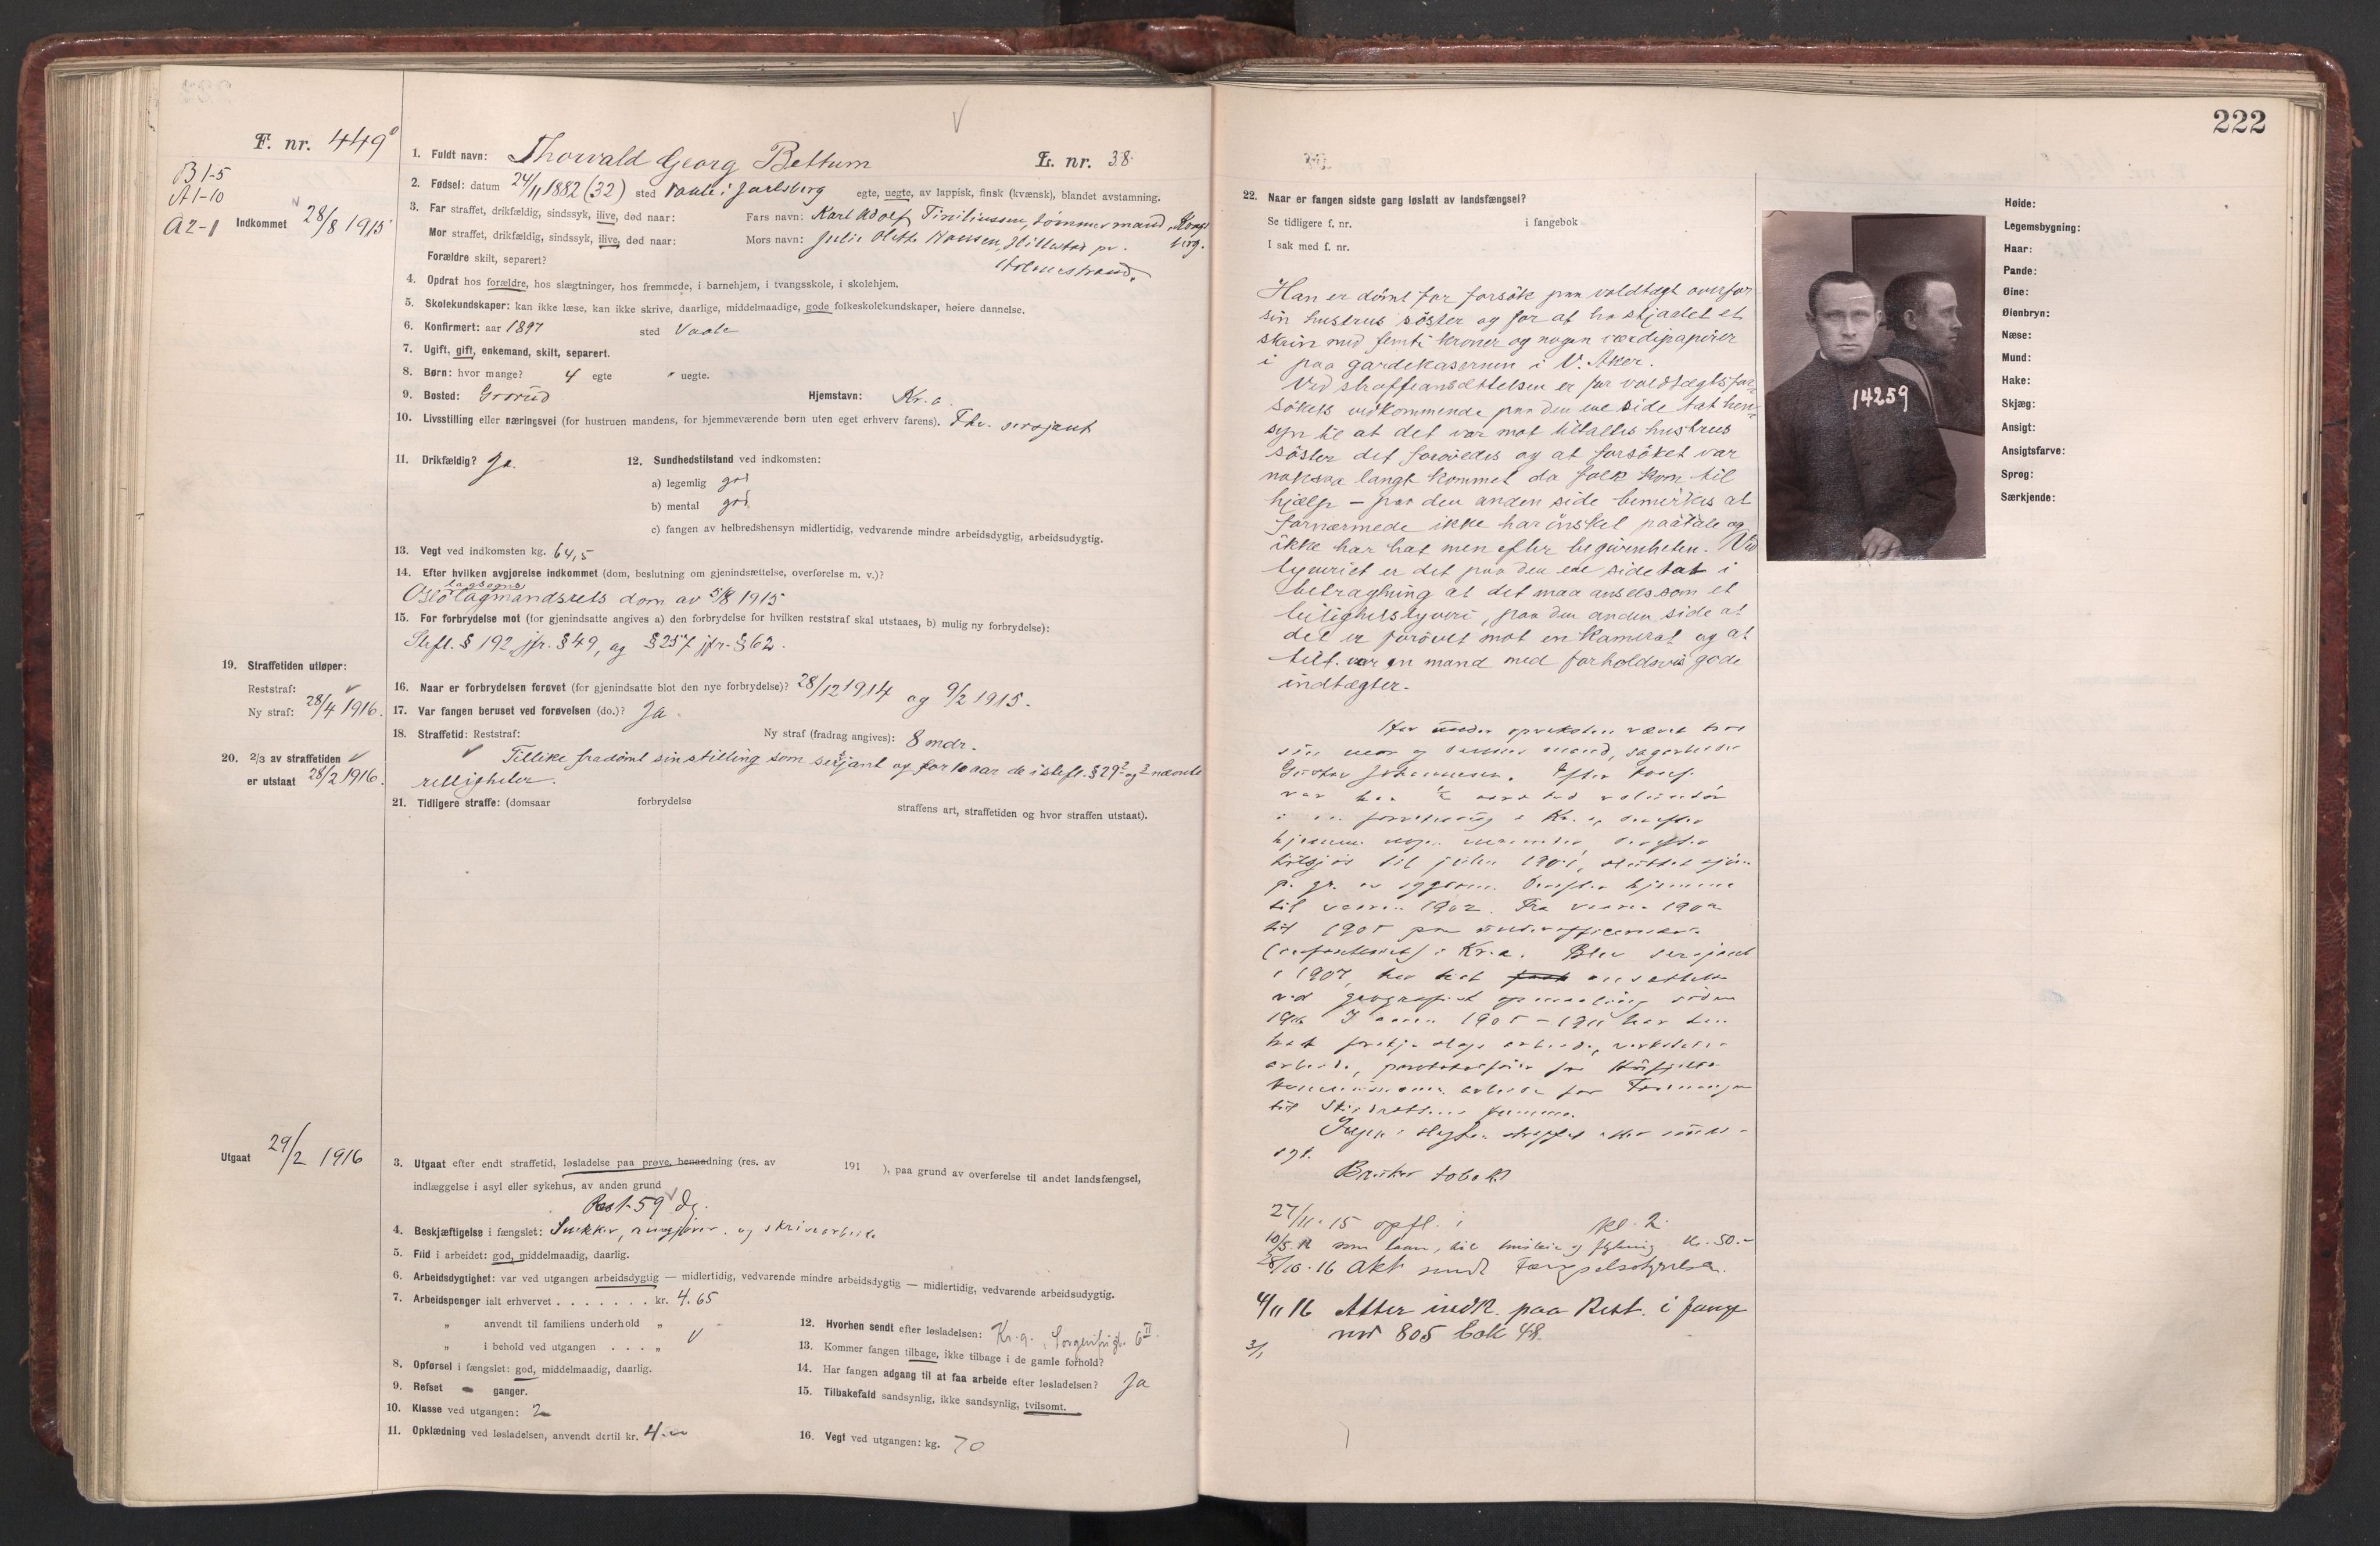 F. nr. 449
B 1-5
A 1-10
A 2-1
Indkommet 28/8 1915
1. Fuldt navn: Thorvald Georg Bettum
L. nr. 38
2. Fødsel: datum 24/11 1882 (32) sted Vaale i Jarlsberg egte, uegte, av lappisk, finsk (kvænsk), blandet avstamning.
3. Far straffet, drikfældig, sindssyk, ilive, død naar: Fars navn: Karl Adolf tømmermand, Kongsberg.
Mor straffet, drikfældig, sindssyk, ilive, død naar: Mors navn: Julie Olette Hansen, pr. Holmestrand.
Forældre skilt, separert?
4. Opdrat hos forældre, hos slægtninger, hos fremmede, i barnehjem, i tvangsskole, i skolehjem.
5. Skolekundskaper: kan ikke læse, kan ikke skrive, daarlige, middelmaadige, gode folkeskolekundskaper, høiere dannelse.
6. Konfirmert: aar 1897 sted Vaale
7. Ugift, gift, enkemand, skilt, separert.
8. Børn: hvor mange? 4 egte " uegte.
9. Bosted: Grorud Hjemstavn: Kr.a.
10. Livsstilling eller næringsvei (for hustruen mandens, for hjemmeværende børn uten eget erhverv farens). Fhv. sersjant
11. Drikfældig? Ja.
12. Sundhedstilstand ved indkomsten:
a) legemlig god
b) mental god
c) fangen av helbredshensyn midlertidig, vedvarende mindre arbeidsdygtig, arbeidsudygtig.
13. Vegt ved indkomsten kg. 64,5
14. Efter hvilken avgjørelse indkommet (dom, beslutning om gjenindsættelse, overførelse m. v.)?
lagsogns
Oslo lagmandsrets dom av 5/8 1915
15. For forbrydelse mot (for gjenindsatte angives a) den forbrydelse for hvilken reststraf skal utstaaes, b) mulig ny forbrydelse):
Strfl. § 192 jfr. § 49, og § 257 jfr. § 62.
19. Straffetiden utløper:
Reststraf:
Ny straf: 28/4 1916.
16. Naar er forbrydelsen forøvet (for gjenindsatte blot den nye forbrydelse)? 28/12 1914 og 9/2 1915.
17. Var fangen beruset ved forøvelsen (do.)? Ja
18. Straffetid: Reststraf: Ny straf (fradrag angives): 8 mdr.
20. 2/3 av straffetiden
er utstaat 28/2 1916.
Tillike fradømt sin stilling som sersjant og for 10 aar de i strfl. § 29 2 og 3 nævnte
rettigheter.
21. Tidligere straffe: (domsaar forbrydelse straffens art, straffetiden og hvor straffen utstaat).
Utgaat 29/2 1916
3. Utgaat efter endt straffetid, løsladelse paa prøve, benaadning (res. av 191 ), paa grund av overførelse til andet landsfængsel,
indlæggelse i asyl eller sykehus, av anden grund
Rest 59 dg.
4. Beskjæftigelse i fængslet: Snekker, og skrivearbeide
5. Flid i arbeidet: god, middelmaadig, daarlig.
6. Arbeidsdygtighet: var ved utgangen arbeidsdygtig — midlertidig, vedvarende mindre arbeidsdygtig — midlertidig, vedvarende arbeidsudygtig.
7. Arbeidspenger ialt erhvervet . . . . . . . kr. 4.65
" anvendt til familiens underhold "
" i behold ved utgangen . . . "
8. Opførsel i fængslet: god, middelmaadig, daarlig.
9. Refset ganger.
10. Klasse ved utgangen: 2
11. Opklædning ved løsladelsen, anvendt dertil kr. 4.00
12. Hvorhen sendt efter løsladelsen: Kr.a., Sorgenfrigt. 6 II
13. Kommer fangen tilbage, ikke tilbage i de gamle forhold?
14. Har fangen adgang til at faa arbeide efter løsladelsen? Ja
15. Tilbakefald sandsynlig, ikke sandsynlig, tvilsomt.
16. Vegt ved utgangen: kg. 70
222
22. Naar er fangen sidste gang løslatt av landsfængsel?
Se tidligere f. nr. i fangebok
I sak med f. nr.
Han er dømt for forsøk paa voldtægt overfor
sin hustrus søster og for at ha stjaalet et
skrin med femti kroner og nogen værdipapirer
i paa gardekasernen i V. Aker.
Ved straffeansættelsen er for voldtægtsfor-
søkets vedkommende paa den ene side tat hen-
syn til at det var mot tiltaltes hustrus
søster det forøvedes og at forsøket var
noksaa langt kommet da folk kom til
hjælp — paa den anden side bemerkes at
fornærmede ikke har ønsket paatale og
ikke har hat men efter begivenheten. Ved
tyveriet er det paa den ene side tat i
betragtning at det maa ansees som et
leilighetstyveri, paa den anden side at
det er forøvet mot en kamerat og at
tilt. var en mand med forholdsvis gode
indtægter.
Har under opveksten været hos
sin mor og dennes mand,
Gustav Johannesen. Efter konf.
var han 1/2 aars tid
i en forretning i Kr.a, derefter
hjemme nogen maaneder, derefter
tilsjøs til julen 1901, sluttet
p. gr. av sygdom. Derefter hjemme
til vaaren 1902. Fra vaaren 1902
til 1905 paa underofficerskole
i Kr.a. Blev sersjant
i 1907, har hat ansættelse
ved geografisk opmaaling siden
I aarene 1905 – 1911 har han
hat forskjellige arbeide, verksteds-
arbeide, for
arbeide for Foreningen
til Ski-idrættens fremme.
Ingen i slegten straffet eller sinds-
syk.
Bruker tobak
27/11 15 opfl. i kl. 2.
10/5 16 som laan, til husleie og flytning kr. 50.-
28/10 16 Akt sendt Fængselsstyrelsen.
4/11 16 Atter indk. paa Rest. i fange
no 805 bok 48.
2/1
14259
Høide:
Legemsbygning:
Haar:
Pande:
Øine:
Øienbryn:
Næse:
Mund:
Hake:
Skjæg:
Ansigt:
Ansigtsfarve:
Sprog:
Særkjende: